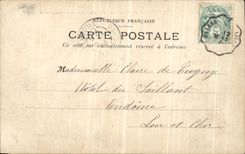 RÉPUBLIQUE FRANÇAISE
CARTE POSTALE
Ce côté est exclusivement réservé à l'adresse
Mademoiselle Claire de
Hôtel du Saillant
Vendôme
Loir et Cher